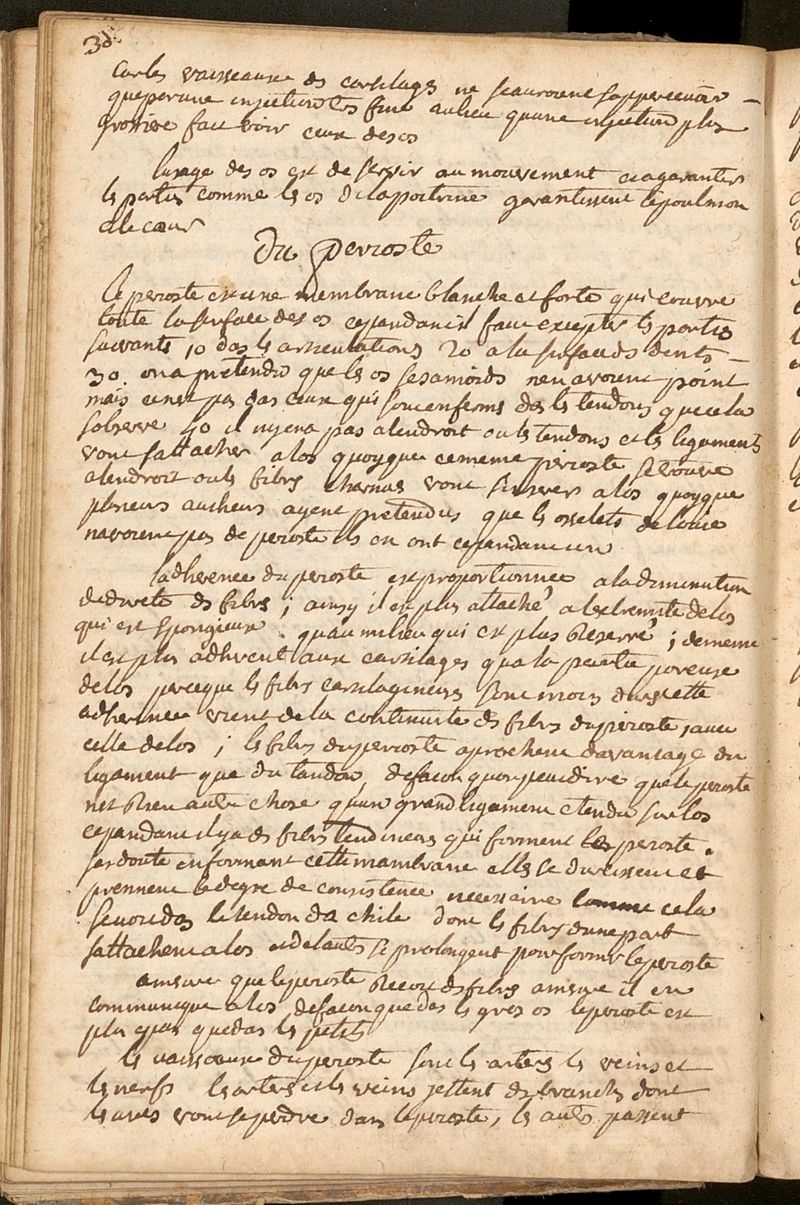 38
car les vaisseaux des cartilages ne scauroient sappercevoir
que par une injection tres fine aulieu quune injection plus
grossiere fait voir ceux des os
lusage des os est de servir au mouvement et a garantir
les parties comme les os de la poitrine garantissent le poulmon
et le cœur
Du perioste
le perioste est une membrane blanche et forte qui couvre
toute la surface des os cependant il faut excepter les parties
suivants 10 das les articulations 20 a la surface ds dents
30. on a pretendu que les os sesamoids nen avoient point
mais ce nest pas das ceux qui sont enfermé ds les tendons que cela
sobserve 40 il ny en a pas a lendroit ou les tendons et les ligaments
vont sattacher a los quoyque ce meme perioste se trouve
a lendroit ou ls fibrs charnus vont sinserer a los quoyque
plusieurs autheurs ayent pretendus que ls osselets de louie
navoient pas de perioste ils en ont cependant un
ladherence du perioste est proportionnée a la diminution
de dureté ds fibrs ; ainsy il est plus attaché a lextremité de los
qui est spongieux. quau milieu qui est plus reserré ; de meme
il est plus adherent aux cartilages qua la partie poreuse
de los parceque ls fibrs cartilagineuses sont moins durs cette
adherence vient de la continuité ds fibrs du perioste, avec
celle de los ; ls fibrs du perioste aprochent davantage du
ligament que du tandon, de facon quon peut dire que le perioste
nest rien autre chose quun grand ligament etendu sur los
cependant il y a ds fibrs tendineuses qui forment le perioste.
sas doute en formant cette mambrane elles se divisent et
prennent le degre de consistence necessaire comme cela
se voit das le tendon dachile dont ls fibrs dune part
sattachent a los et de lautre se prolongent pour former le perioste
a mesure que le perioste recoit ds fibrs a mesure il en
communique a los, de facon que das ls gros os le perioste est
plus epais que das ls petits
les vaisseaux du perioste sont ls arters ls veins et
ls nerfs ls arters et ls veins jettent ds branchs dont
ls uns vont se perdre dans le perioste, ls autrs passent